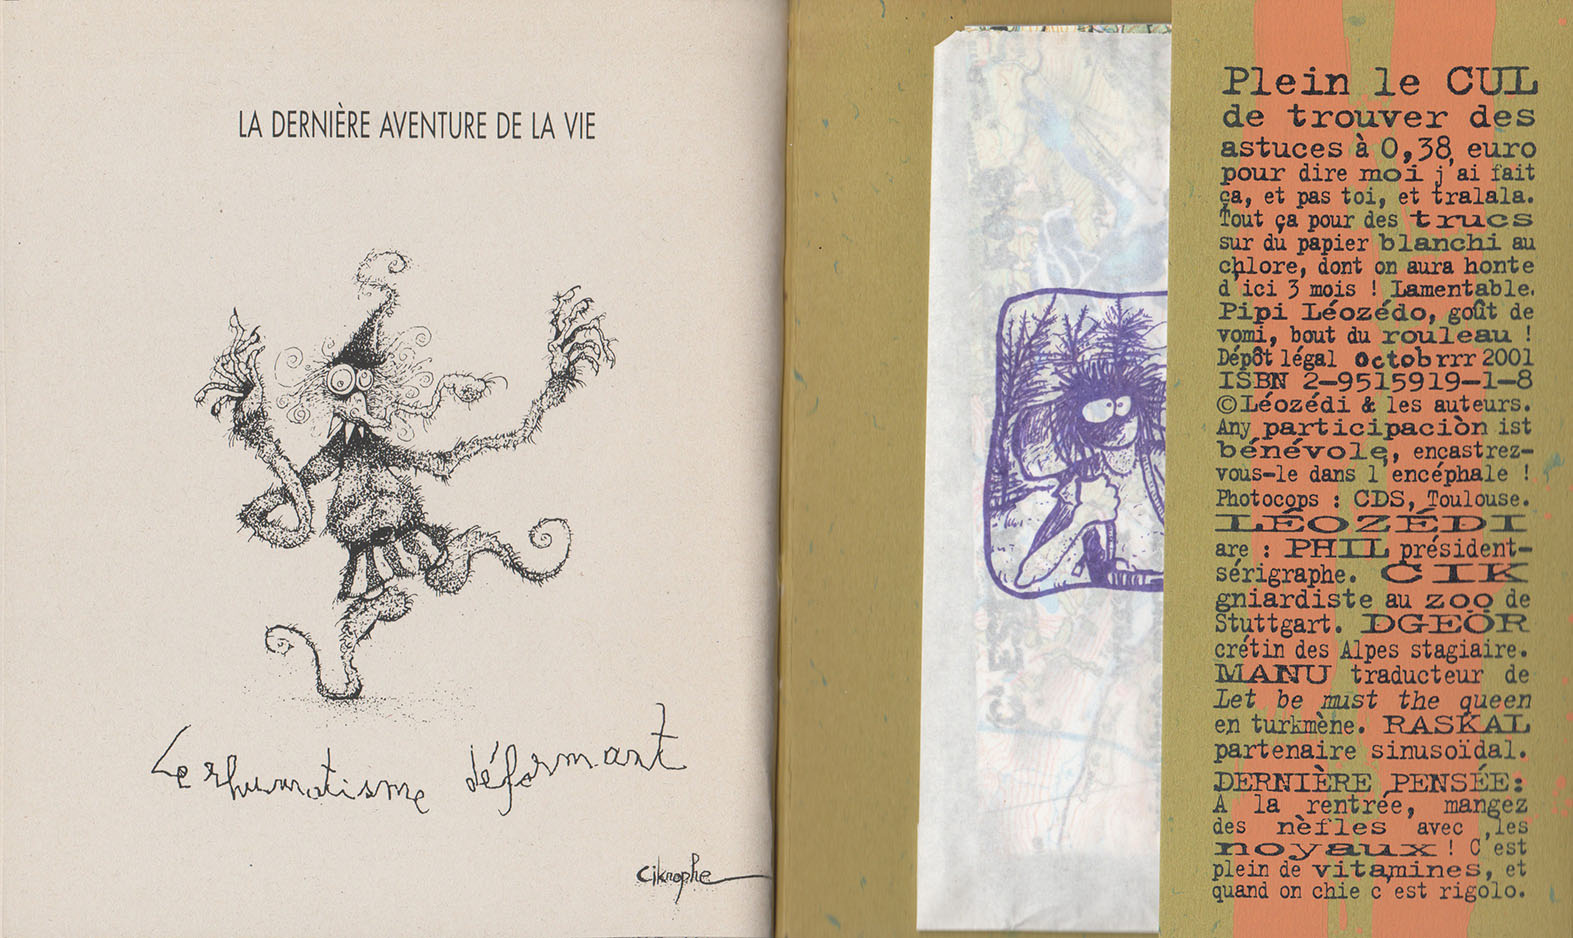 LA DERNIÈRE AVENTURE DE LA VIE
Le rhumatisme déformant
Cikrophe
Plein le CUL
de trouver des
astuces à 0,38 euro
pour dire moi j'ai fait
ça, et pas toi, et tralala.
Tout ça pour des trucs
sur du papier blanchi au
chlore, dont on aura honte
d'ici 3 mois ! Lamentable.
Pipi Léozédo, goût de
vomi, bout du rouleau !
Dépôt légal octobrrr 2001
ISBN 2-9515919-1-8
©Léozédi & les auteurs.
Any participaciòn ist
bénévole, encastrez-
vous-le dans l'encéphale !
Photocops : CDS, Toulouse.
LÉOZÉDI
are : PHIL président-
sérigraphe. CIK
gniardiste au zoo de
Stuttgart. DGEÖR
crétin des Alpes stagiaire.
MANU traducteur de
Let be must the queen
en turkmène. RASKAL
partenaire sinusoïdal.
DERNIÈRE PENSÉE:
A la rentrée, mangez
des nèfles avec les
noyaux ! C'est
plein de vitamines, et
quand on chie c'est rigolo.